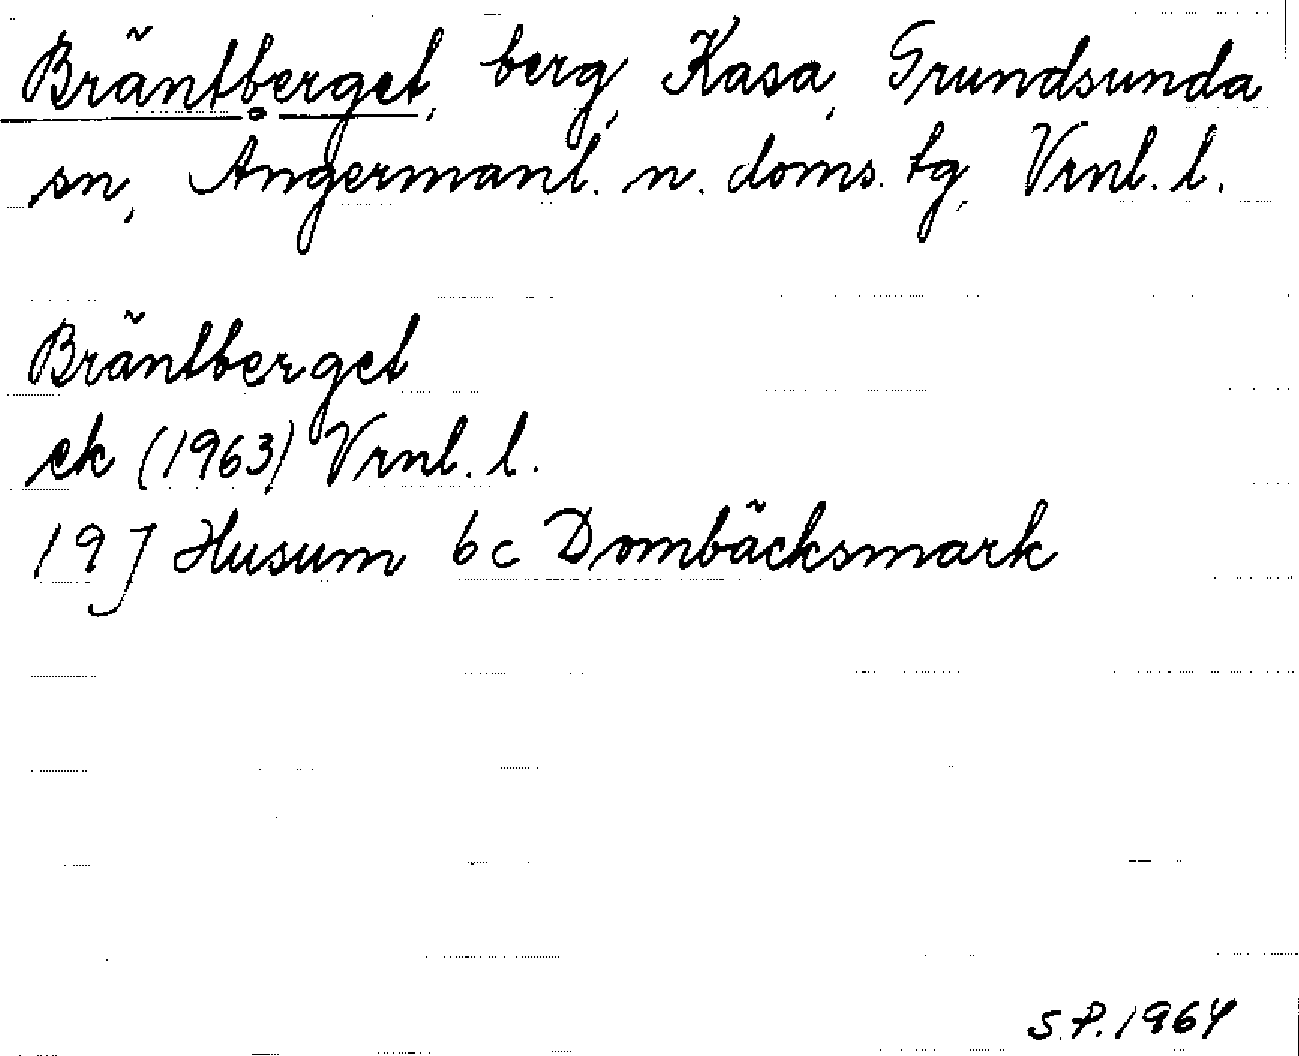 Bräntberget, berg, Kasa, Grundsunda
sn, Ångermanl. n. doms. tg, Vrnl. l.
Bräntberget
ek (1963) Vrnl. l.
19J Husum 6c Dombäcksmark
S.P. 1964